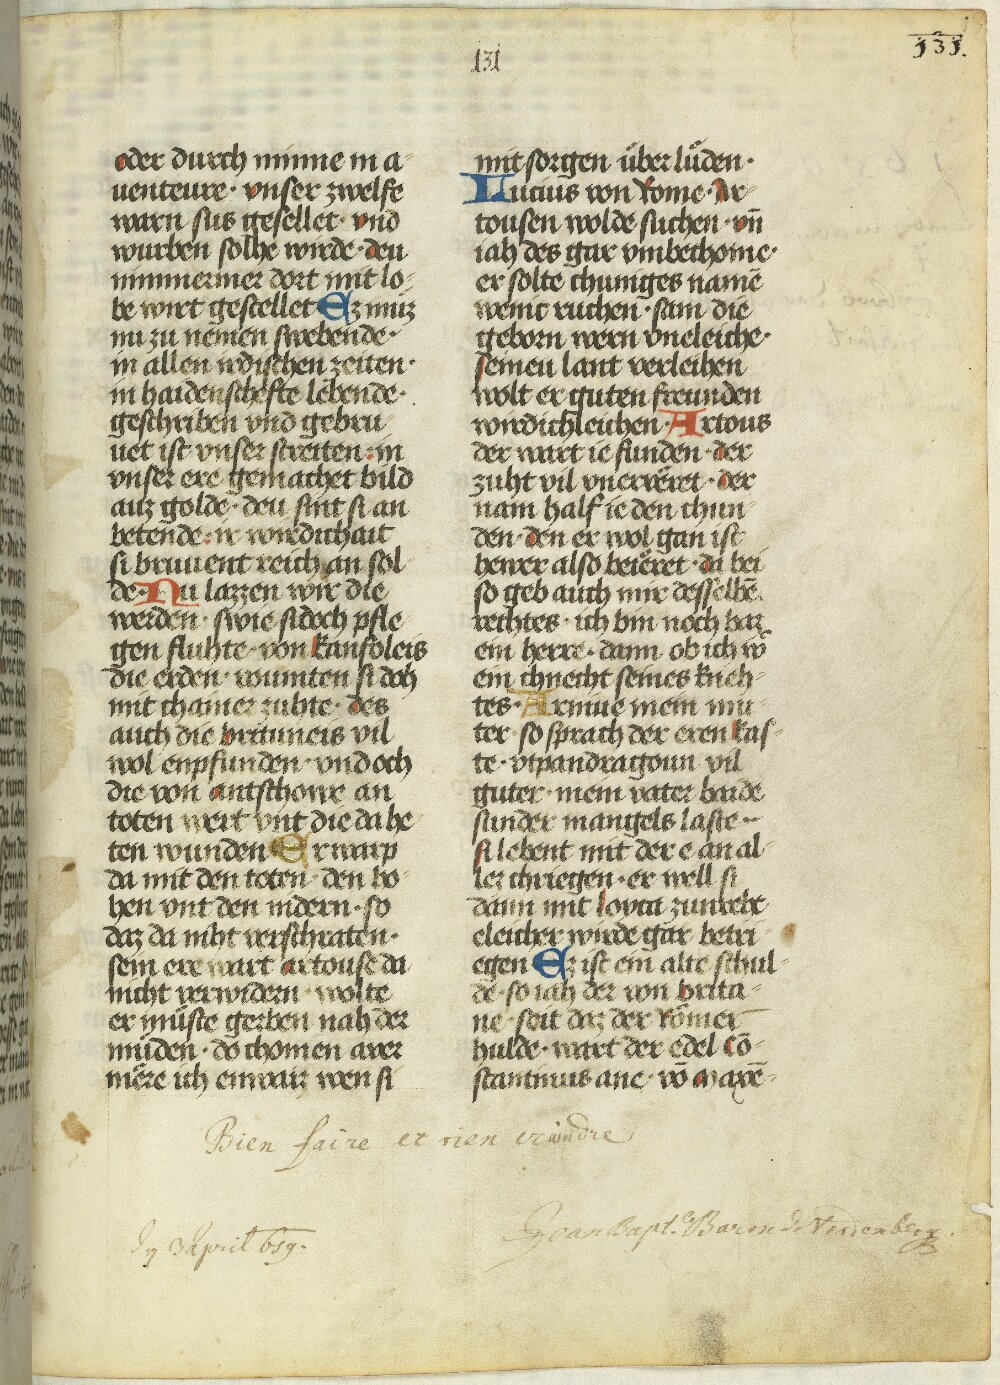 131
131.
oder durch minne in a-
venteure· vnser zwelfe
warn sus gesellet· vnd
wurben solhe wirde· deu
nimmermer dort mit lo-
be wirt gestellet Ez muz
nu zu nemen swebende·
in allen irdischen zeiten·
in haidenschefte lebende·
geschriben vnd gebru-
uet ist vnser streiten· in
vnser ere gemachet bild
auz golde· deu sint si an
betende· ir wirdichait
si bruuent reich an sol-
de· Nu lazzen wir die
werden· swie si doch pfle-
gen fluhte· von kanfoleis
die erden· rumten si doh
mit chainer zuhte· des
auch die brituneis vil
wol enpfunden· vnd och
die von antschowe an
toten wert vnt die da he-
ten wunden Er warp
da mit den toten· den ho-
hen vnt den nidern· so
daz da niht verschraten·
sein ere wart artouse da
nicht verwidern· wolte
er müste gerben nah der
müden· do chomen aver
mere ich enwaiz wen si
mit sorgen über lüden·
Lucius von Rome· Ar-
tousen wolde suchen· vn̄
iah des gar vmbechome·
er solte chuniges namē
wenic ruchen· sam die
geborn wern vneleiche·
seineu lant verleihen
wolt er guten freunden
wirdichleichen· Artous
der wart ie funden· der
zuht vil vnerveret· der
nam half ie den chun-
den· den er wol gan ist
hewer also beieret· da bei
so geb auch mir desselbē
rechtes· ich bin noch baz
ein herre· dann ob ich wͦ
ein chnecht seines kneh-
tes· Arniue mein mu-
ter· so sprach der eren kas-
te· vtpandragoun vil
guter· mein vater baide
sunder mangels laste–
si lebent mit der e an al-
lez chriegen· er well si
dann mit loyca zunrebt
eleicher wirde gar betri-
egen Ez ist ein alte schul-
de· so iah der von brita-
ne· seit daz der Römer
hulde· wart der edel Cō-
stantinus ane· vō maxē-
Bien faire et rien craindre
Dy 3 April 659.
Joan Bapt. Baron de Verdenberg